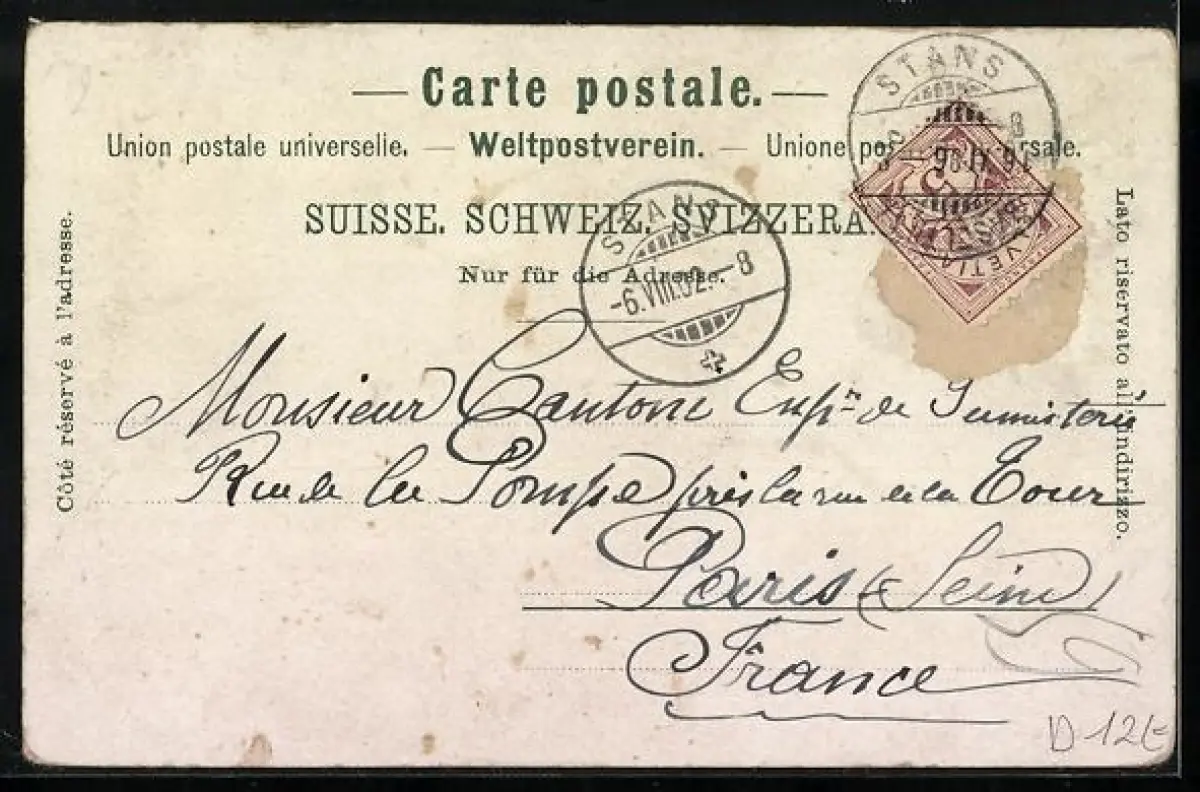 — Carte postale. —
Union postale universelle. — Weltpostverein. — Unione po rsale.
SUISSE. SCHWEIZ. SVIZZERA.
Nur für die Adresse.
Côté réservé à l'adresse.
Lato riservato all'indirizzo.
STANS
STANS
-6.VIII.02.-8
HELVETIA
Monsieur Cantoni Enpr de Fumisterie
Rue de la Pompe près la rue de la Tour
Paris (Seine)
France
D 12E